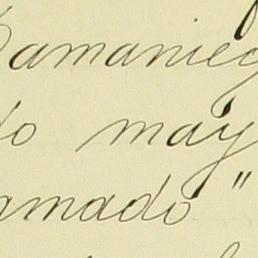 Samanieg
do may
amado"